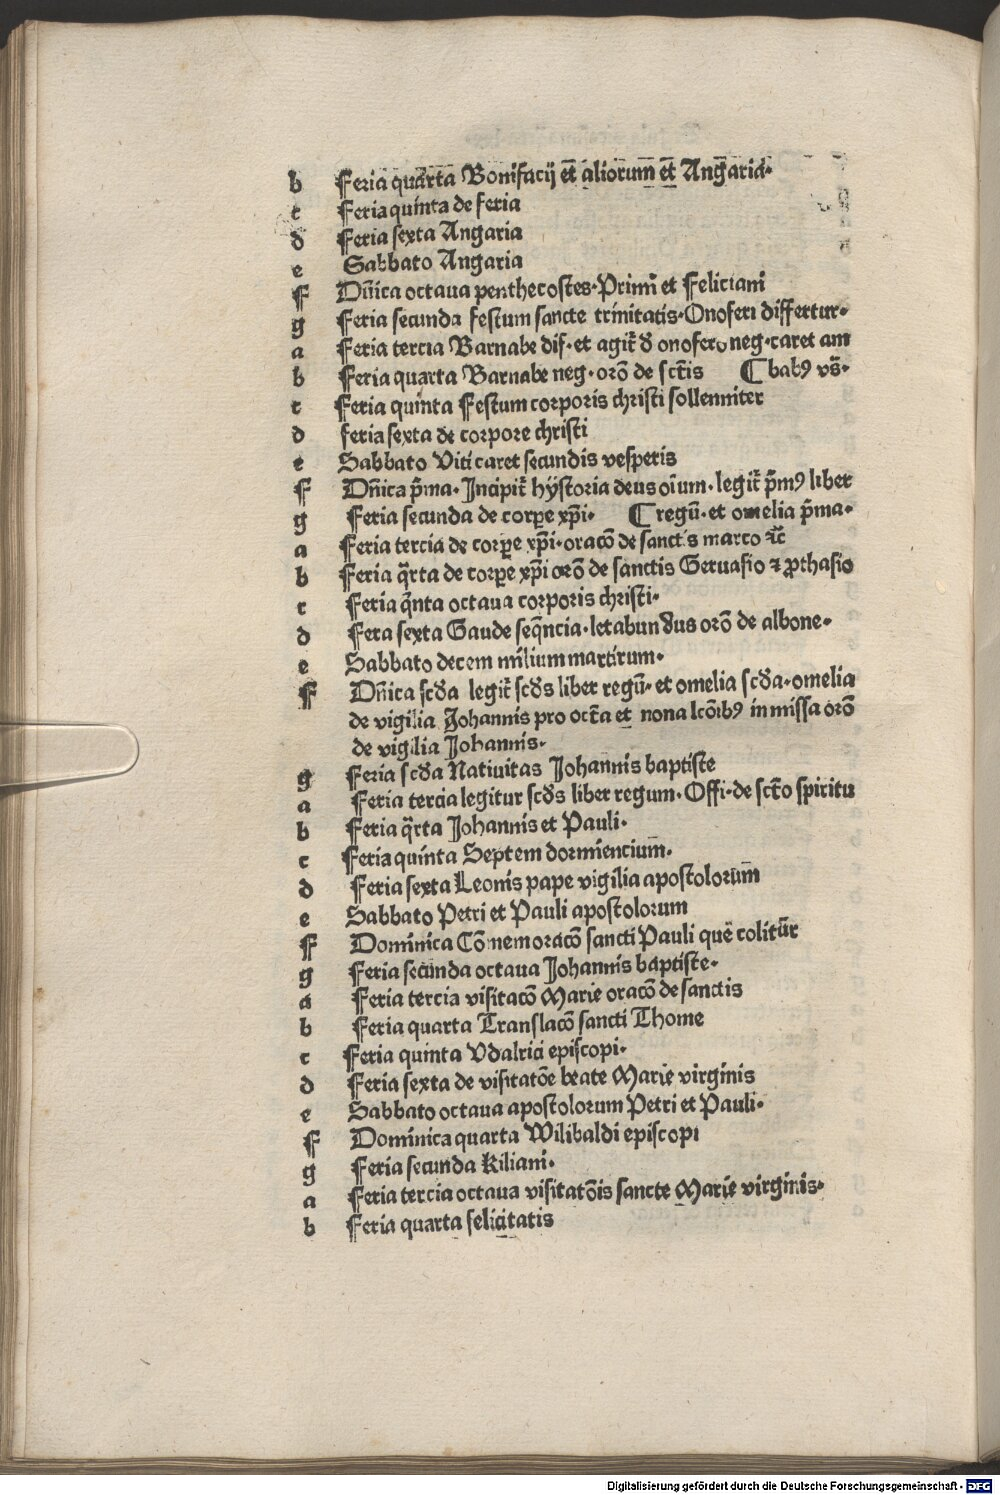 b Feria quarta Bonifacij et aliorum et Angaria.
c Feria quinta de feria
d Feria sexta Angaria
e Sabbato Angaria
F Dñica octaua penthecostes. Primi et Feliciani
g Feria secunda festum sancte trinitatis. Onoferi differtur.
a Feria tercia Barnabe dif. et agit̃ d onofero neg. caret am
b Feria quarta Barnabe neg. orõ de sct̃is ¶ babꝯ vs̃.
c Feria quinta Festum corporis christi sollenniter
d feria sexta de corpore christi
e Sabbato Viti caret secundis vesperis
F Dñica p̃ma. Incipit̃ hystoria deus oĩum. legit̃ p̃mꝯ liber
g Feria secunda de corꝑe xp̃i. ¶ regũ. et omelia p̃ma.
a Feria tercia de corꝑe xp̃i. oracõ de sanctis marco ⁊c̃
b Feria q̃rta de corꝑe xp̃i orõ de sanctis Geruasio ⁊ ꝓthasio
c Feria q̃nta octaua corporis christi.
d Fera sexta Gaude seq̃ncia. letabundus orõ de albone.
e Sabbato decem milium martirum.
F Dñica scd̃a legit̃ scd̃s liber regũ. et omelia scd̃a. omelia
de vigilia Johannis pro oct̃a et nona lcõibꝯ in missa orõ
de vigilia Johannis.
g Feria scd̃a Natiuitas Johannis baptiste
a Feria tercia legitur scd̃s liber regum. Offi. de sct̃o spiritu
b Feria q̃rta Johannis et Pauli.
c Feria quinta Septem dormiencium.
d Feria sexta Leonis pape vigilia apostolorum
e Sabbato Petri et Pauli apostolorum
F Dominica Cõmemoracõ sancti Pauli quẽ colitũr
g Feria secunda octaua Johannis baptiste.
a Feria tercia visitacõ Marie oracõ de sanctis
b Feria quarta Translacõ sancti Thome
c Feria quinta Vdalrici episcopi.
d Feria sexta de visitatõe beate Marie virginis
e Sabbato octaua apostolorum Petri et Pauli.
F Dominica quarta Wilibaldi episcopi
g Feria secunda Kiliani.
a Feria tercia octaua visitatõis sancte Marie virginis.
b Feria quarta felicitatis
Digitalisierung gefördert durch die Deutsche Forschungsgemeinschaft - DFG